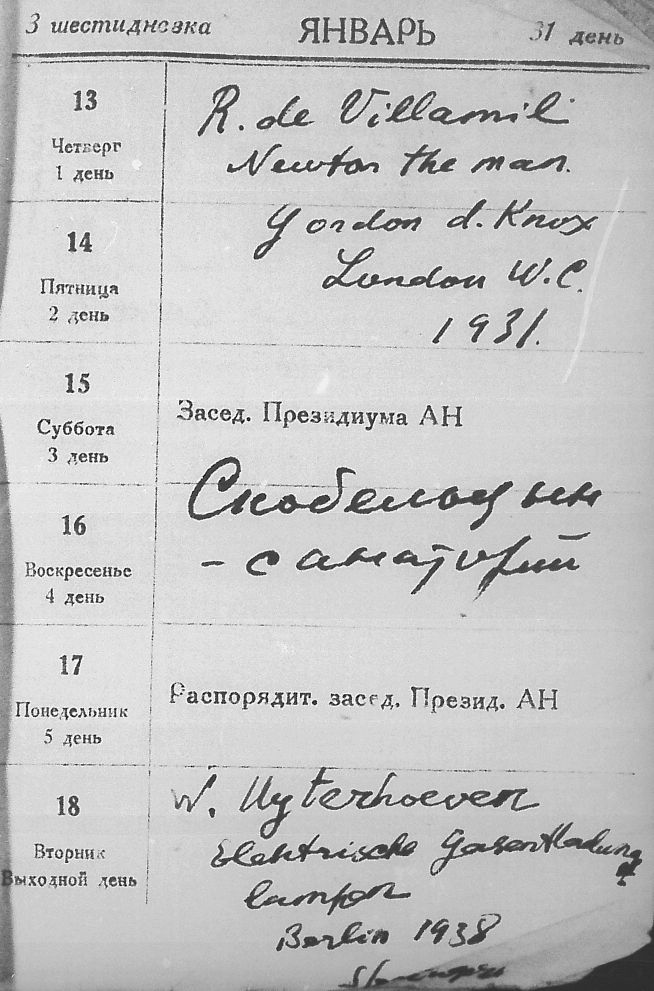 3 шестидневка ЯНВАРЬ 31 день
13
Четверг
1 день
R. de Villamil
Newton the man.
Gordon d. Knox
London W.C.
1931.
14
Пятница
2 день
15
Суббота
3 день
Засед. Президиума АН
Скобельцын
- санаторий
16
Воскресенье
4 день
17
Понедельник
5 день
Распорядит. засед. Презид. АН
18
Вторник
Выходной день
W. Uyterhoeven
Elektrische Gasentladung
lampen
Berlin 1938